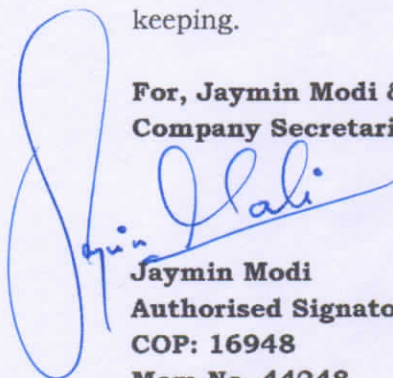 keeping.
For, Jaymin Modi &
Company Secretari
Jaymin Modi
Jaymin Modi
Authorised Signato
COP: 16948
Mem No. 44248